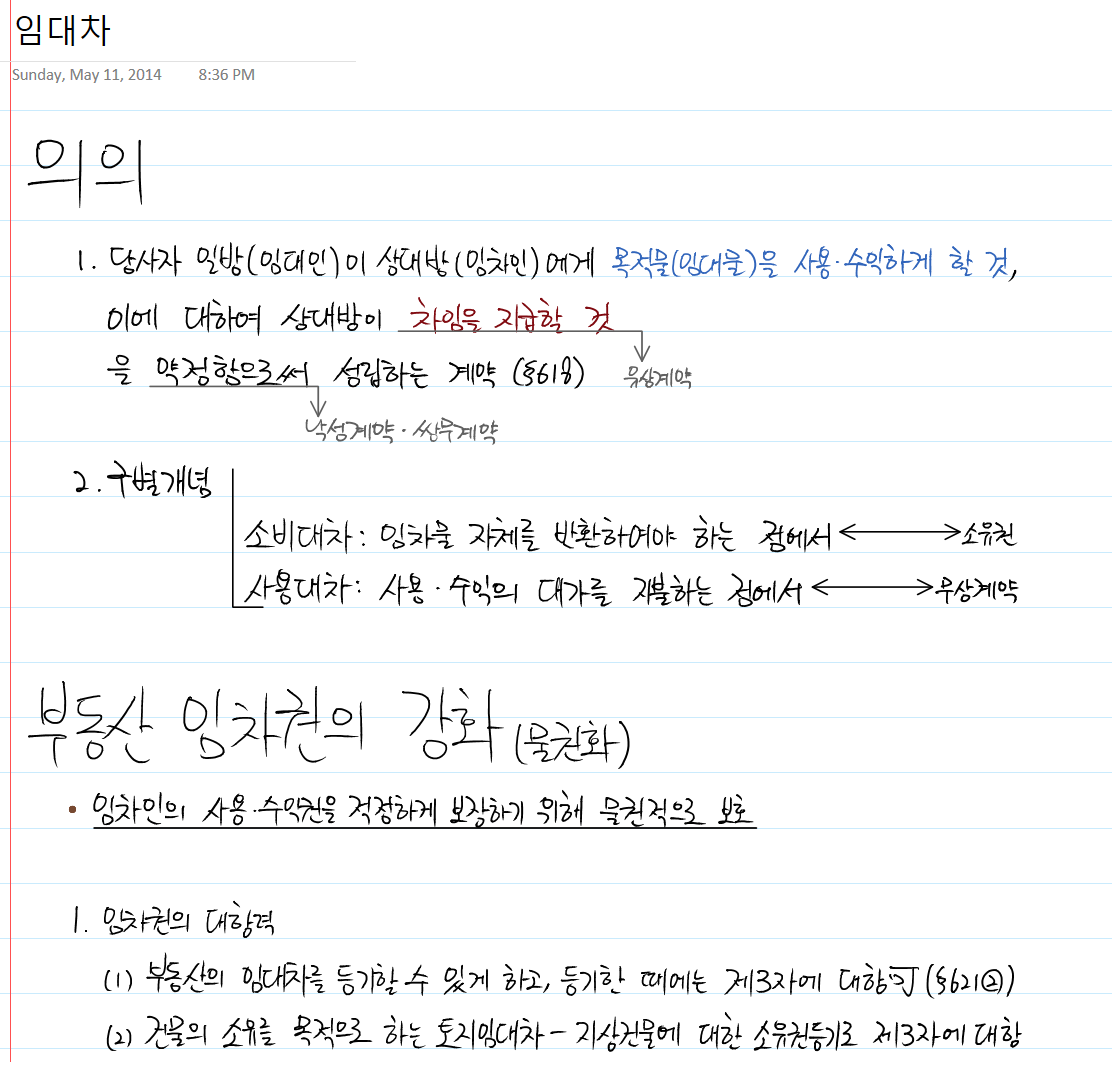 임대차
Sunday, May 11, 2014 8:36 PM
의의
1. 당사자 일방(임대인)이 상대방(임차인)에게 목적물(임대물)을 사용·수익하게 할 것,
이에 대하여 상대방이 차임을 지급할 것
을 약정함으로써 성립하는 계약 (§618) 유상계약
낙성계약·쌍무계약
2. 구별개념
소비대차: 임차물 자체를 반환하여야 하는 점에서 ↔ 소유권
사용대차: 사용·수익의 대가를 지불하는 점에서 ↔ 무상계약
부동산 임차권의 강화 (물권화)
• 임차인의 사용·수익권을 적정하게 보장하기 위해 물권적으로 보호
1. 임차권의 대항력
(1) 부동산의 임대차를 등기할 수 있게 하고, 등기한 때에는 제3자에 대항 可 (§621②)
(2) 건물의 소유를 목적으로 하는 토지임대차 - 지상건물에 대한 소유권등기로 제3자에 대항